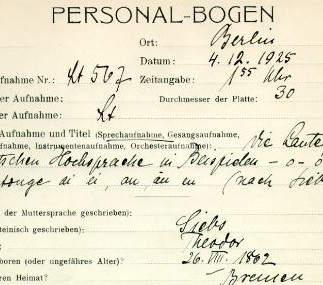 PERSONAL-BOGEN
Ort: Berlin
Datum: 4. 12. 1925
ufnahme Nr.: Lt 567 Zeitangabe: 1 55 Uhr
er Aufnahme: Durchmesser der Platte: 30
er Aufnahme: Lt
Aufnahme und Titel (Sprechaufnahme, Gesangsaufnahme,
fnahme, Instrumentenaufnahme, Orchesteraufnahme): Die Laute
tschen Hochsprache in Beispielen - o - ö
ai ei, au, äu eu (nach Sieb
der Muttersprache geschrieben): Siebs
teinisch geschrieben): Theodor
boren (oder ungefähres Alter)? 26. VIII. 1862
ren Heimat? Bremen